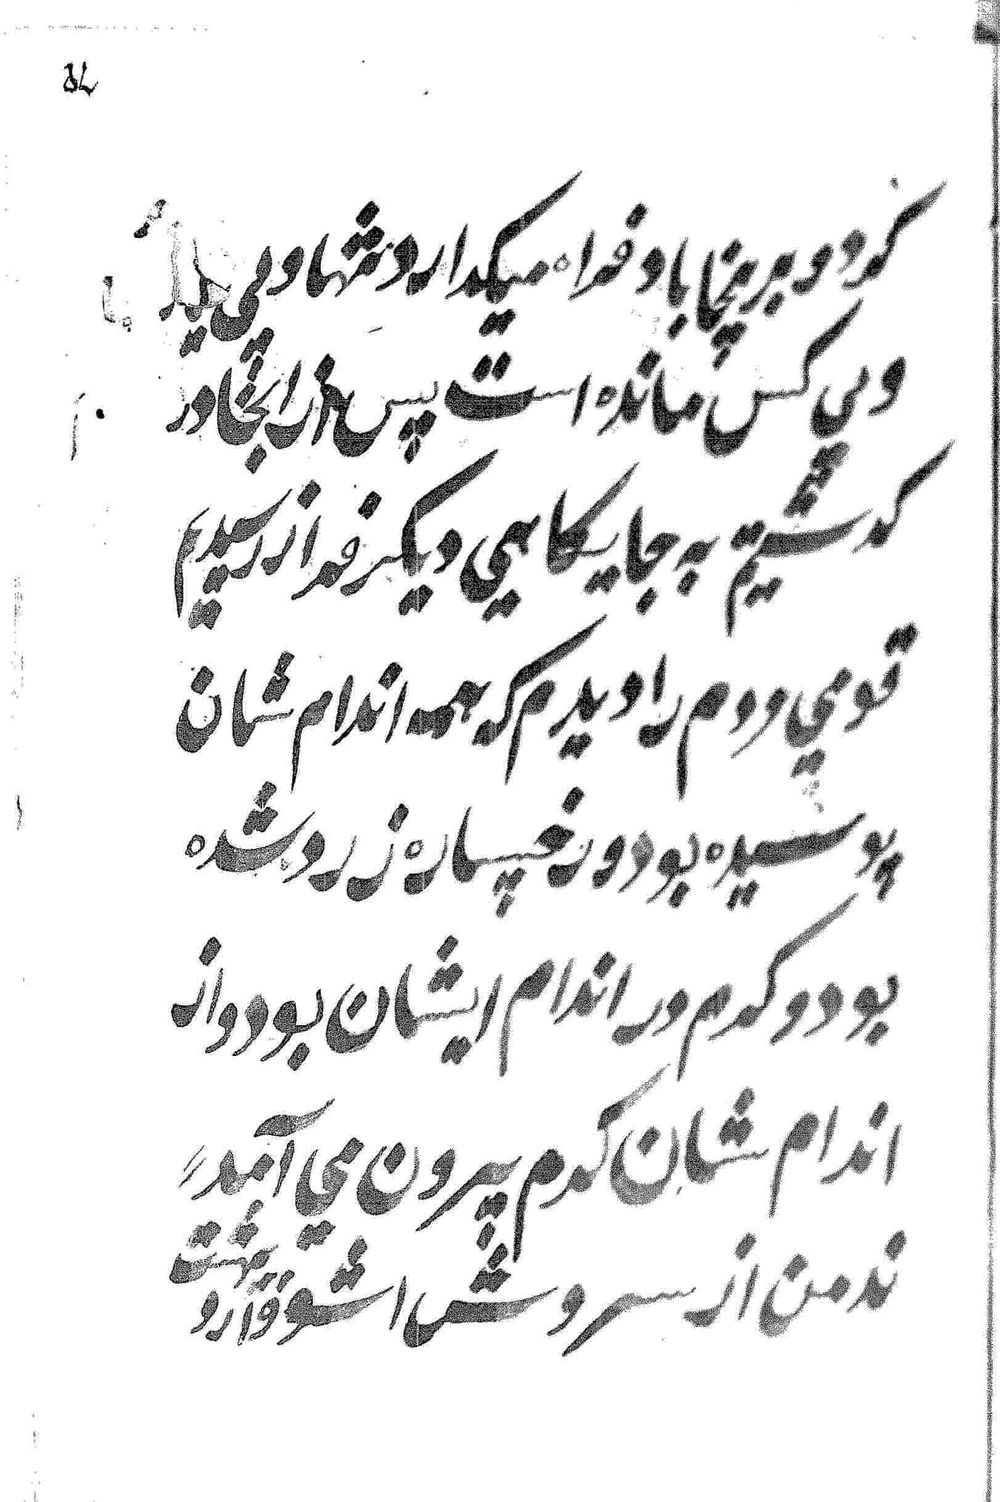 کرد و بر پنجا باد فدا ه میکدارد تنها و بی یار
و بی کس مانده است پس از انجا در
کدشتیم به جایکاهی دیکر فداز رسیدیم
قومی مردم را دیدم که همه اندام شان
پوسیده بود و رخپساره زرد شده
بود و کرم در اندام ایشان بود و از
اندام شان کرم پیرون می آمد
ند من از سروش اشو و آزرو
بهشت